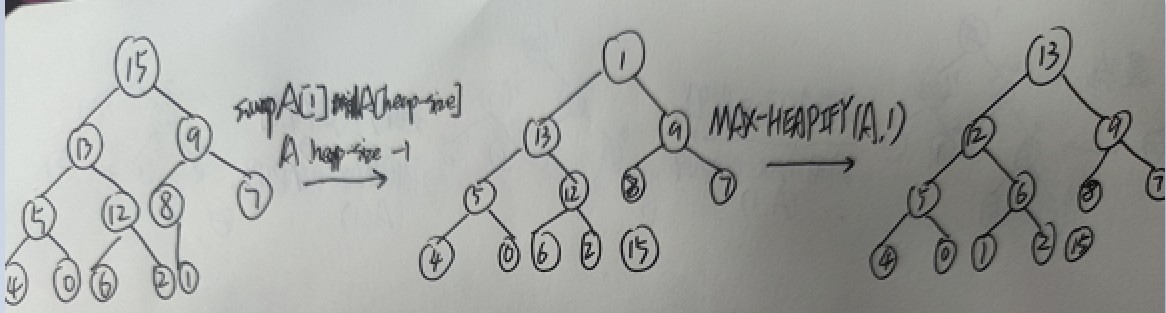 15
13 9
5 12 8 7
4 0 6 2 1
swap A[1] and A[heap-size]
A heap-size -1
1
13 9
5 12 8 7
4 0 6 2 15
MAX-HEAPIFY(A,1)
13
12 9
5 6 8 7
4 0 1 2 15